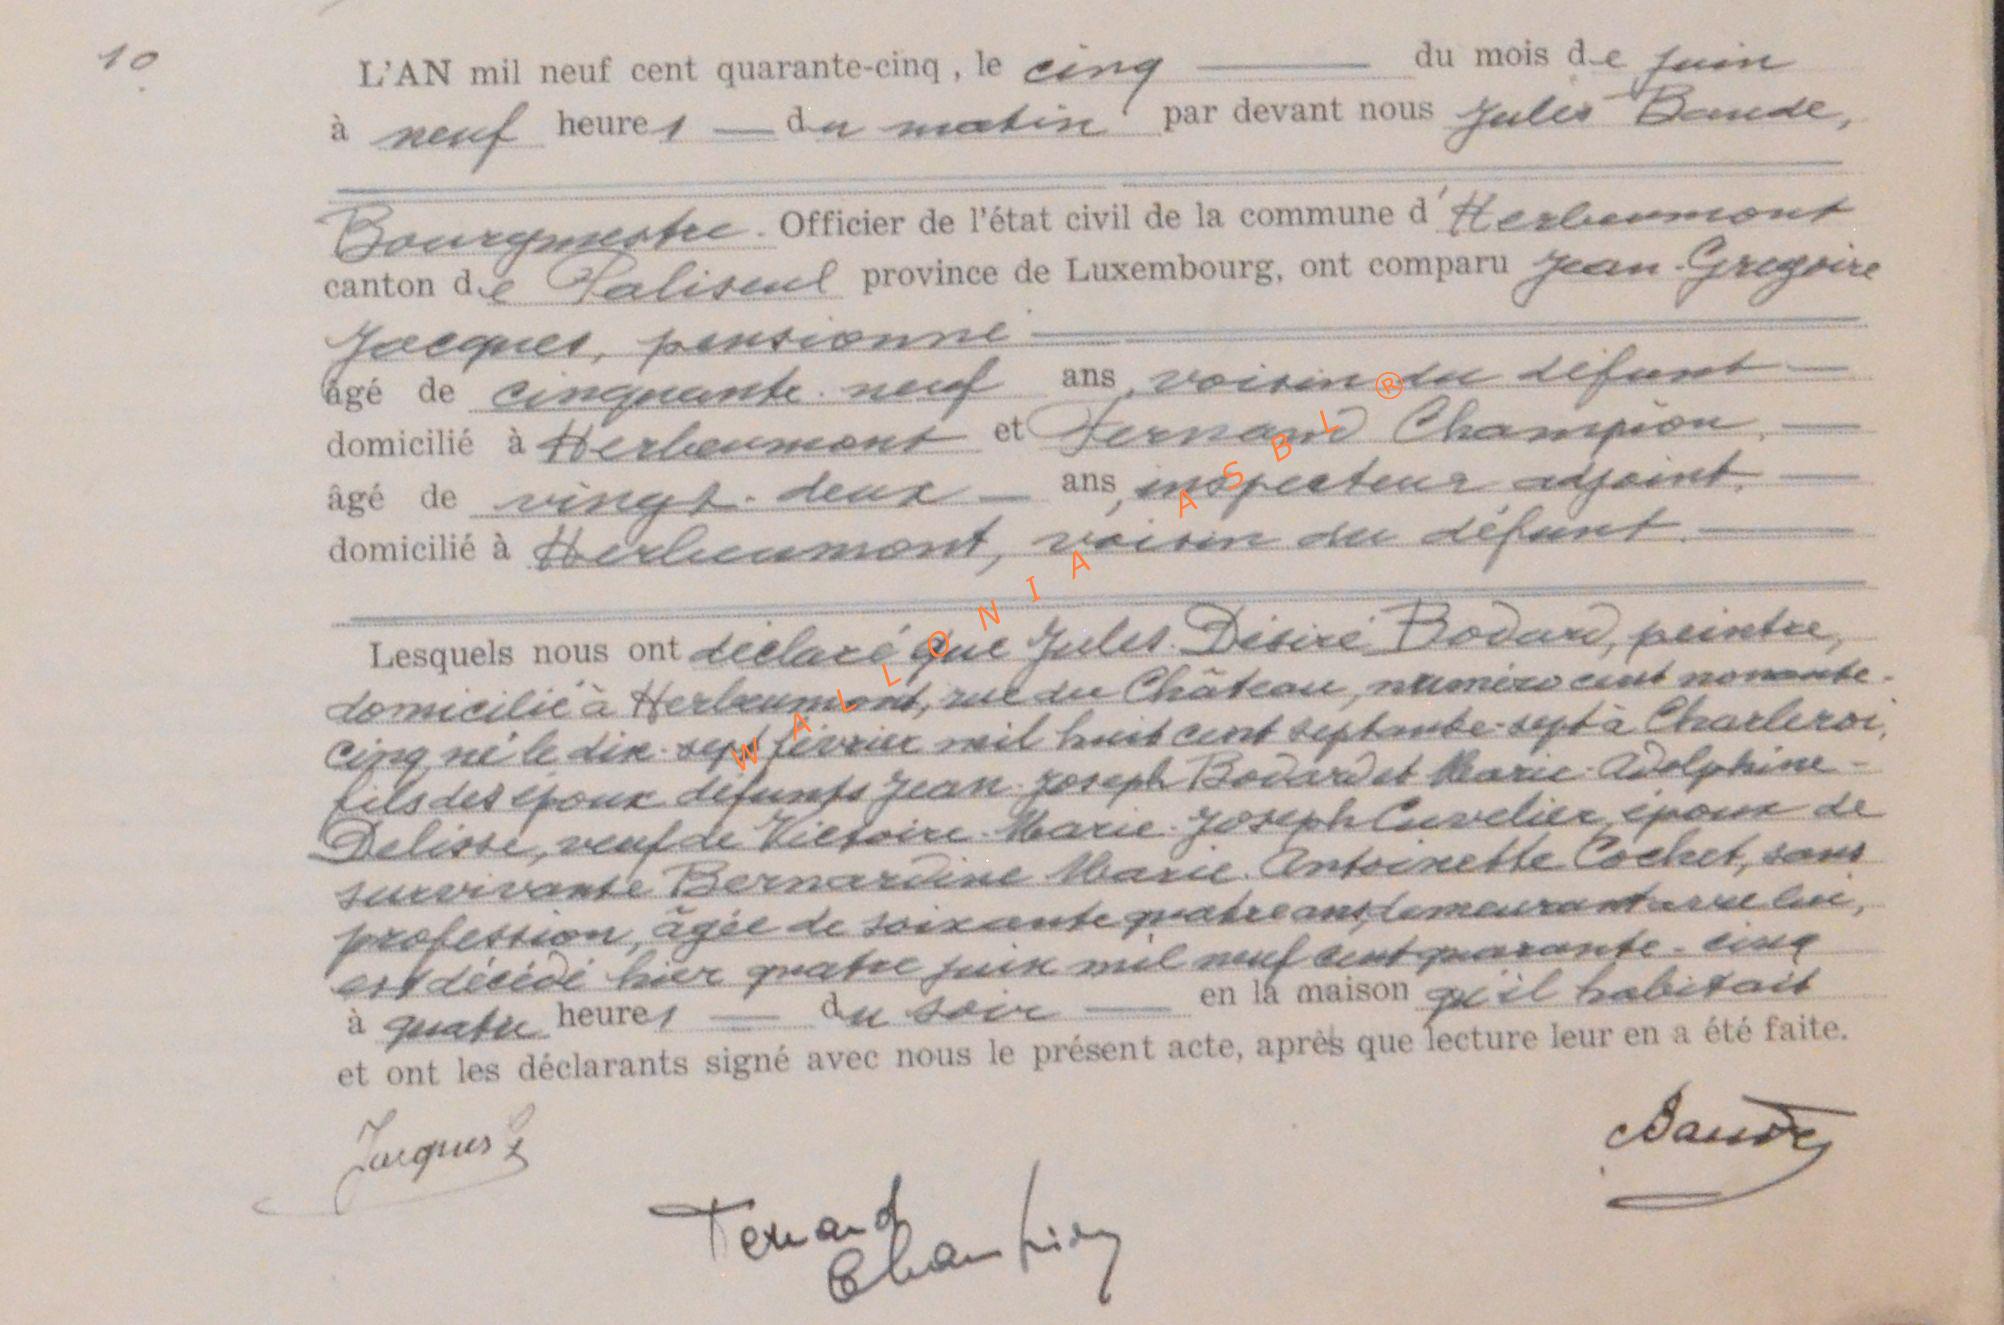 10
L'AN mil neuf cent quarante-cinq, le cinq du mois de juin
à neuf heures du matin par devant nous Jules Baude,
Bourgmestre. Officier de l'état civil de la commune d'Herbeumont
canton de Paliseul province de Luxembourg, ont comparu Jean-Gregoire
Jacques, pensionné
âgé de cinquante-neuf ans, voisin du défunt
domicilié à Herbeumont et Fernand Champion,
âgé de vingt-deux ans, inspecteur adjoint,
domicilié à Herbeumont, voisin du défunt.
Lesquels nous ont déclaré que Jules-Désiré Bodard, peintre,
domicilié à Herbeumont, rue du Château, numéro cent nonante-
cinq, né le dix-sept février mil huit cent septante-sept à Charleroi,
fils des époux défunts Jean-Joseph Bodard et Marie-Adolphine
Delisse, veuf de Victoire-Marie-Joseph Cuvelier, époux de
survivante Bernardine-Marie-Antoinette Cochet, sans
profession, âgée de soixante quatre ans, demeurant avec lui,
est décédé hier quatre juin mil neuf cent quarante-cinq
à quatre heures du soir en la maison qu'il habitait
et ont les déclarants signé avec nous le présent acte, après que lecture leur en a été faite.
Jacques G
Baude
Fernand
Champion
WALLONIA ASBL ®